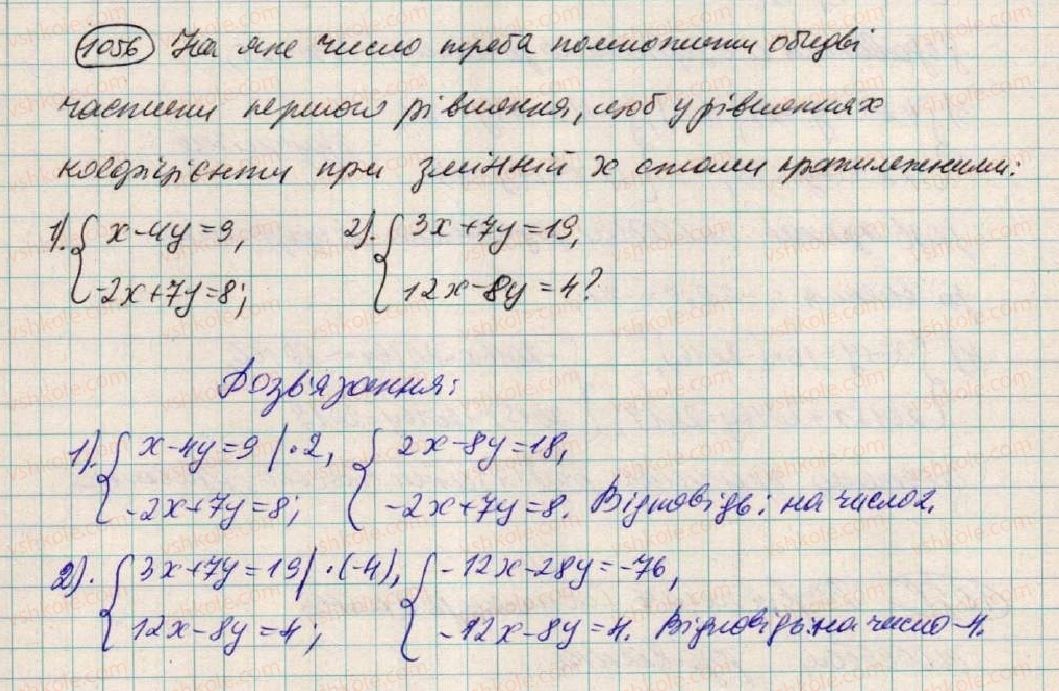 1056 На яке число треба помножити обидві
частини першого рівняння, щоб у рівняннях
коефіцієнти при змінній x стали протилежними:
1). { x-4y=9,   2). { 3x+7y=19,
-2x+7y=8;   12x-8y=4?
Розв'язання:
1). { x-4y=9 |·2,   { 2x-8y=18,
-2x+7y=8;   -2x+7y=8. Відповідь: на число 2.
2). { 3x+7y=19 |·(-4),   { -12x-28y=-76,
12x-8y=4;   -12x-8y=4. Відповідь: на число -4.